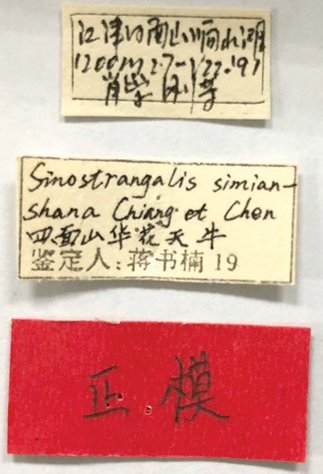 江津四面山顺水湖
1200m
肖学刚等
Sinostrangalis simian-
shana Chiang et Chen
四面山华花天牛
鉴定人:蒋书楠 19
正模